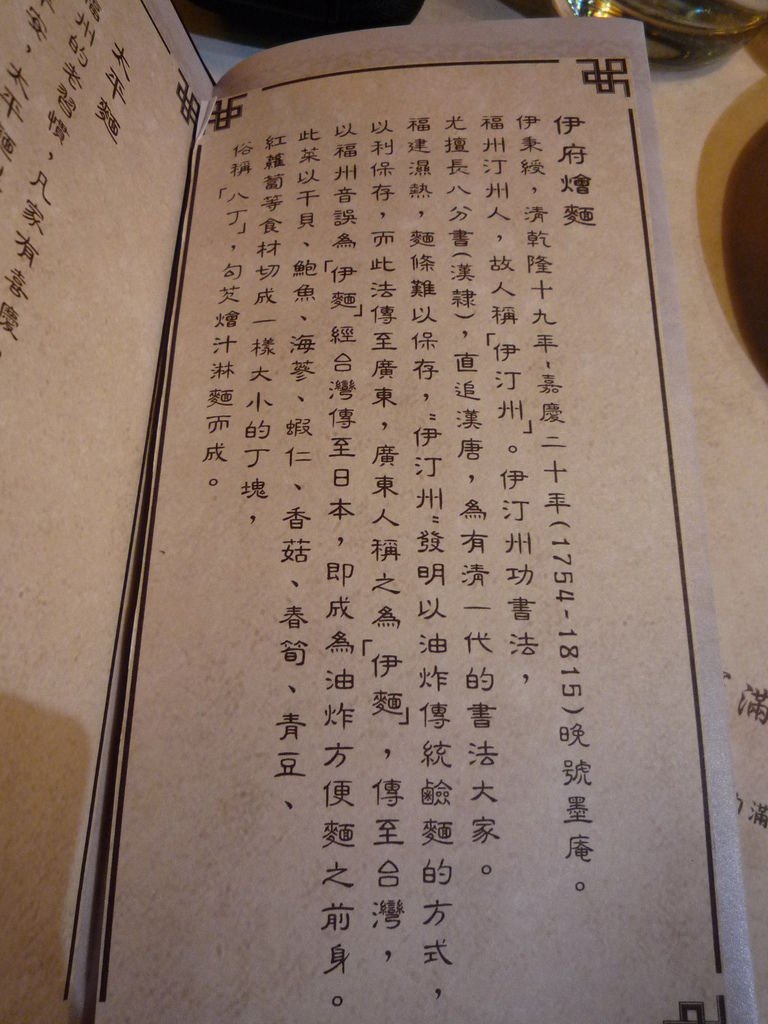 伊府燴麵
伊秉綬，清乾隆十九年-嘉慶二十年(1754-1815)晚號墨庵。
福州汀州人，故人稱「伊汀州」。伊汀州功書法，
尤擅長八分書(漢隸)，直追漢唐，為有清一代的書法大家。
福建濕熱，麵條難以保存，"伊汀州"發明以油炸傳統鹼麵的方式，
以利保存，而此法傳至廣東，廣東人稱之為「伊麵」，傳至台灣，
以福州音誤為「伊麵」經台灣傳至日本，即成為油炸方便麵之前身。
此菜以干貝、鮑魚、海蔘、蝦仁、香菇、春筍、青豆、
紅蘿蔔等食材切成一樣大小的丁塊，
俗稱「八丁」，勾芡燴汁淋麵而成。
太平麵
福州的老習慣，凡家有喜慶
平安，太平麵
滿
滿